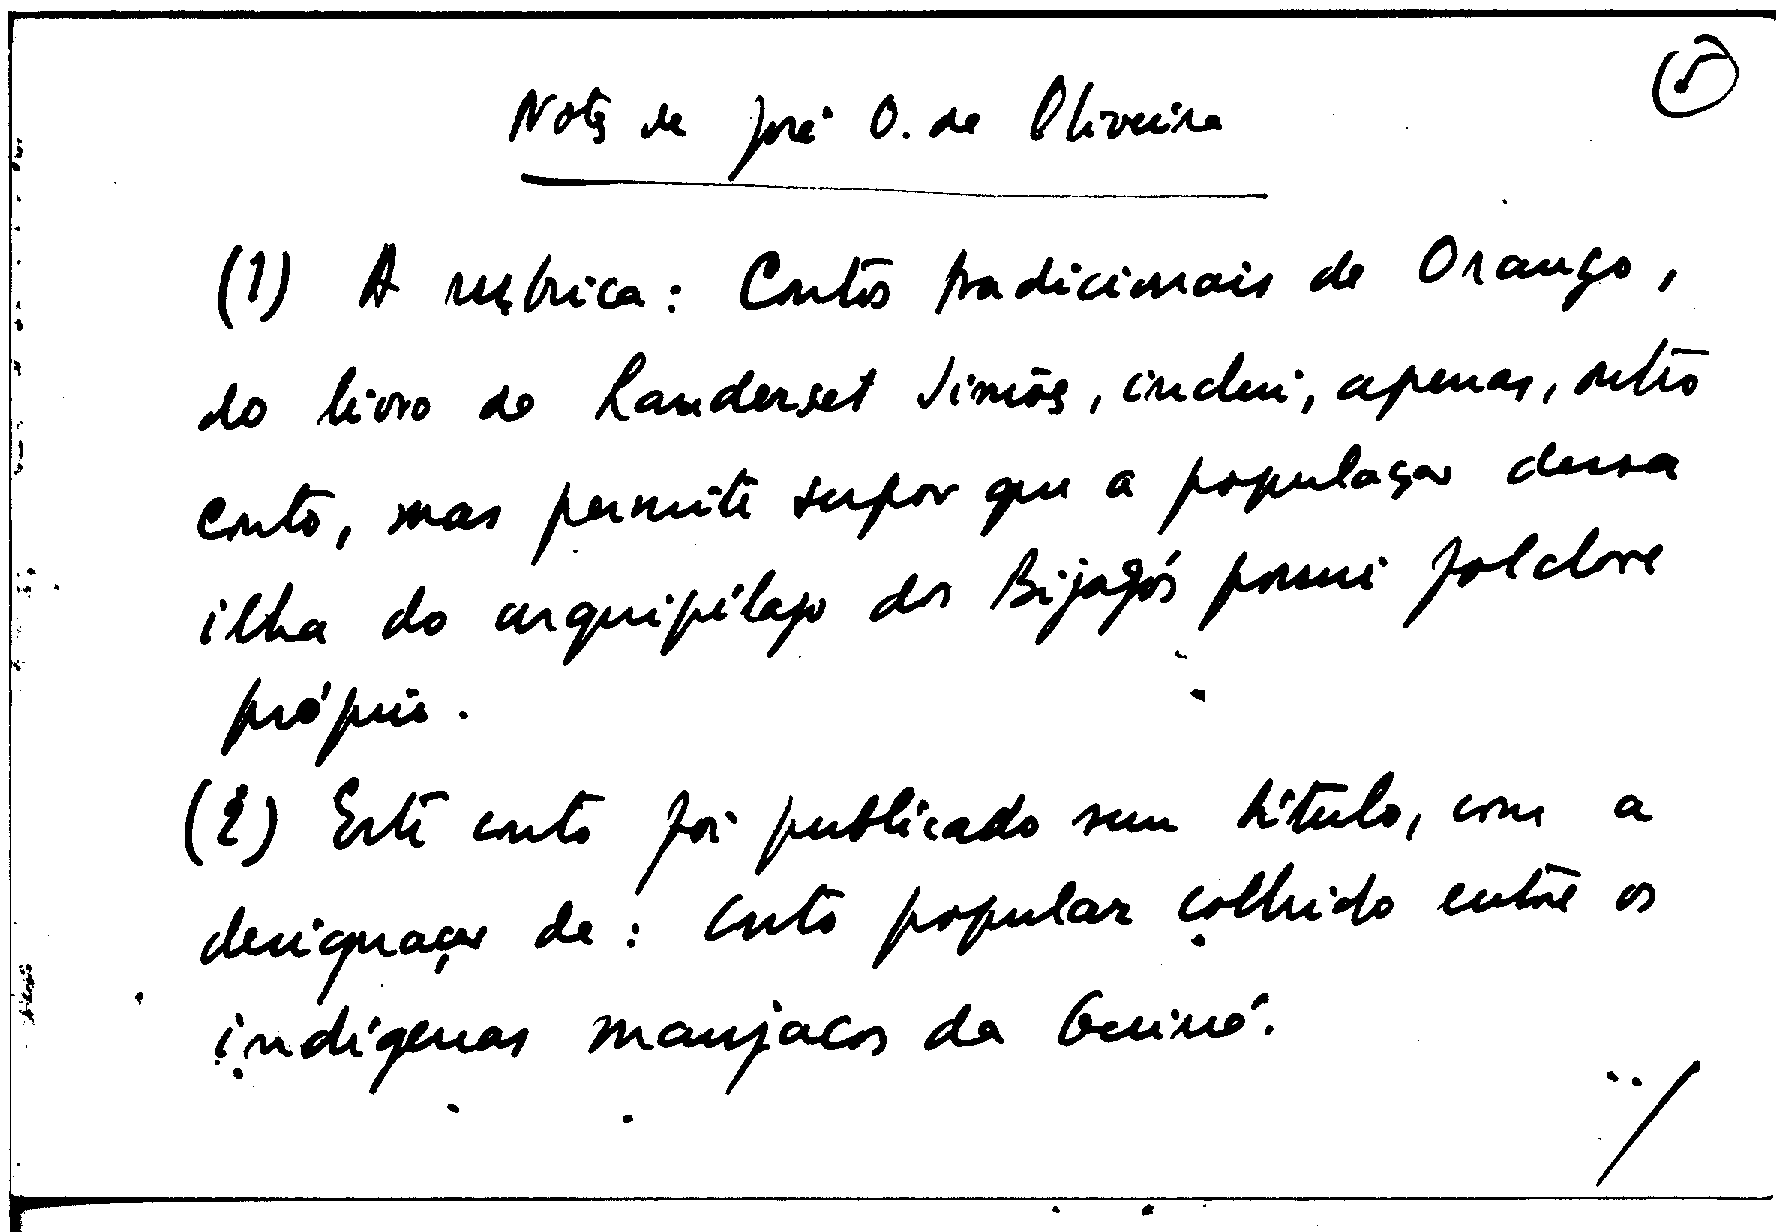 5
Notas de José O. de Oliveira
(1) A rubrica: Contos tradicionais de Orango,
do livro de Landerset Simões, inclui, apenas, outro
conto, mas permite supor que a população dessa
ilha do arquipélago dos Bijagós possui folclore
próprio.
(2) Este conto foi publicado sem título, com a
designação de: Conto popular colhido entre os
indígenas manjacos da Guiné.